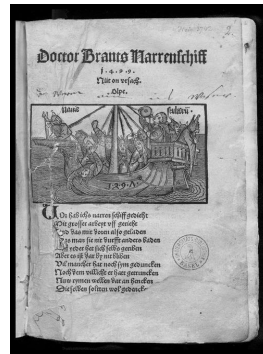 2.
Doctor Brants Narrenschiff
1.4.9.9.
Nüt on vrsach.
Olpe.
Nauis
stultorū.
1494
VOr hab ichs narren schiff gedicht
Mit grosser arbeyt vff gericht
Vnd das mit doren also geladen
Das man sie nit durfft anders baden
Ein yeder het sich selbs geriben
Aber es ist dar by nit bliben
Vil mancher hat noch sym geduncken
Noch dem villicht er hatt getruncken
Nuw rymen wellen dar an hencken
Die selben soltten wol gedencken